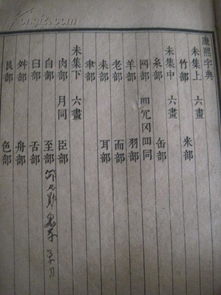 康熙字典
未集上 六畫
竹部 米部
未集中 六畫
糸部 缶部
网部 罒冗冈𦉰同
羊部 羽部
老部 而部
耒部 耳部
聿部
未集下 六畫
肉部 月同 臣部
自部 至部
臼部 舌部
舛部 舟部
艮部 色部